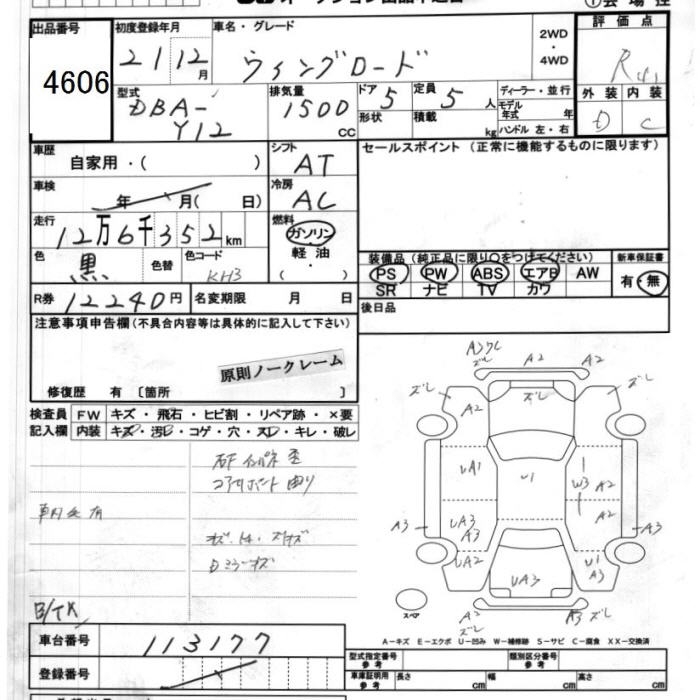 出品番号
4606
初度登録年月
21 12月
車名・グレード
ウィングロード
2WD
・
4WD
評価点
R
外装 内装
D C
型式
DBA-
Y12
排気量
1500
CC
ドア
5
定員
5人
形状
積載
kg
ディーラー・並行
モデル
年式 年
ハンドル 左・右
車歴
自家用・( )
シフト
AT
セールスポイント (正常に機能するものに限ります)
車検
年 月( 日)
冷房
AC
走行
12万6千352km
燃料
ガソリン
軽油・
( )
色
黒
色替
色コード
KH3
装備品 (純正品に限り○をつけてください)
PS PW ABS エアB AW
SR ナビ TV カワ
新車保証書
有・無
R券
12240円
名変期限 月 日
後日品
注意事項申告欄 (不具合内容等は具体的に記入して下さい)
原則ノークレーム
修復歴 有 〔箇所 〕
検査員
記入欄
FW キズ・飛石・ヒビ割・リペア跡・×要
内装 キズ・汚レ・コゲ・穴・スレ・キレ・破レ
コアサポート 曲り
Dミラーキズ
B/TX
ズレ
A2
A2
ズレ
A2
ズレ
ズレ
A2
UA1
U1
W3 A2
A2
A3
UA3
A3
A3
UA2
UA3
U1
A3
スペア
A2
ズレ
A3 ズレ
A-キズ E-エクボ U-凹み W-補修跡 S-サビ C-腐食 XX-交換済
車台番号
113177
登録番号
型式指定番号
参考
類別区分番号
参考
車庫証明用
参考
長さ cm
幅 cm
高さ cm